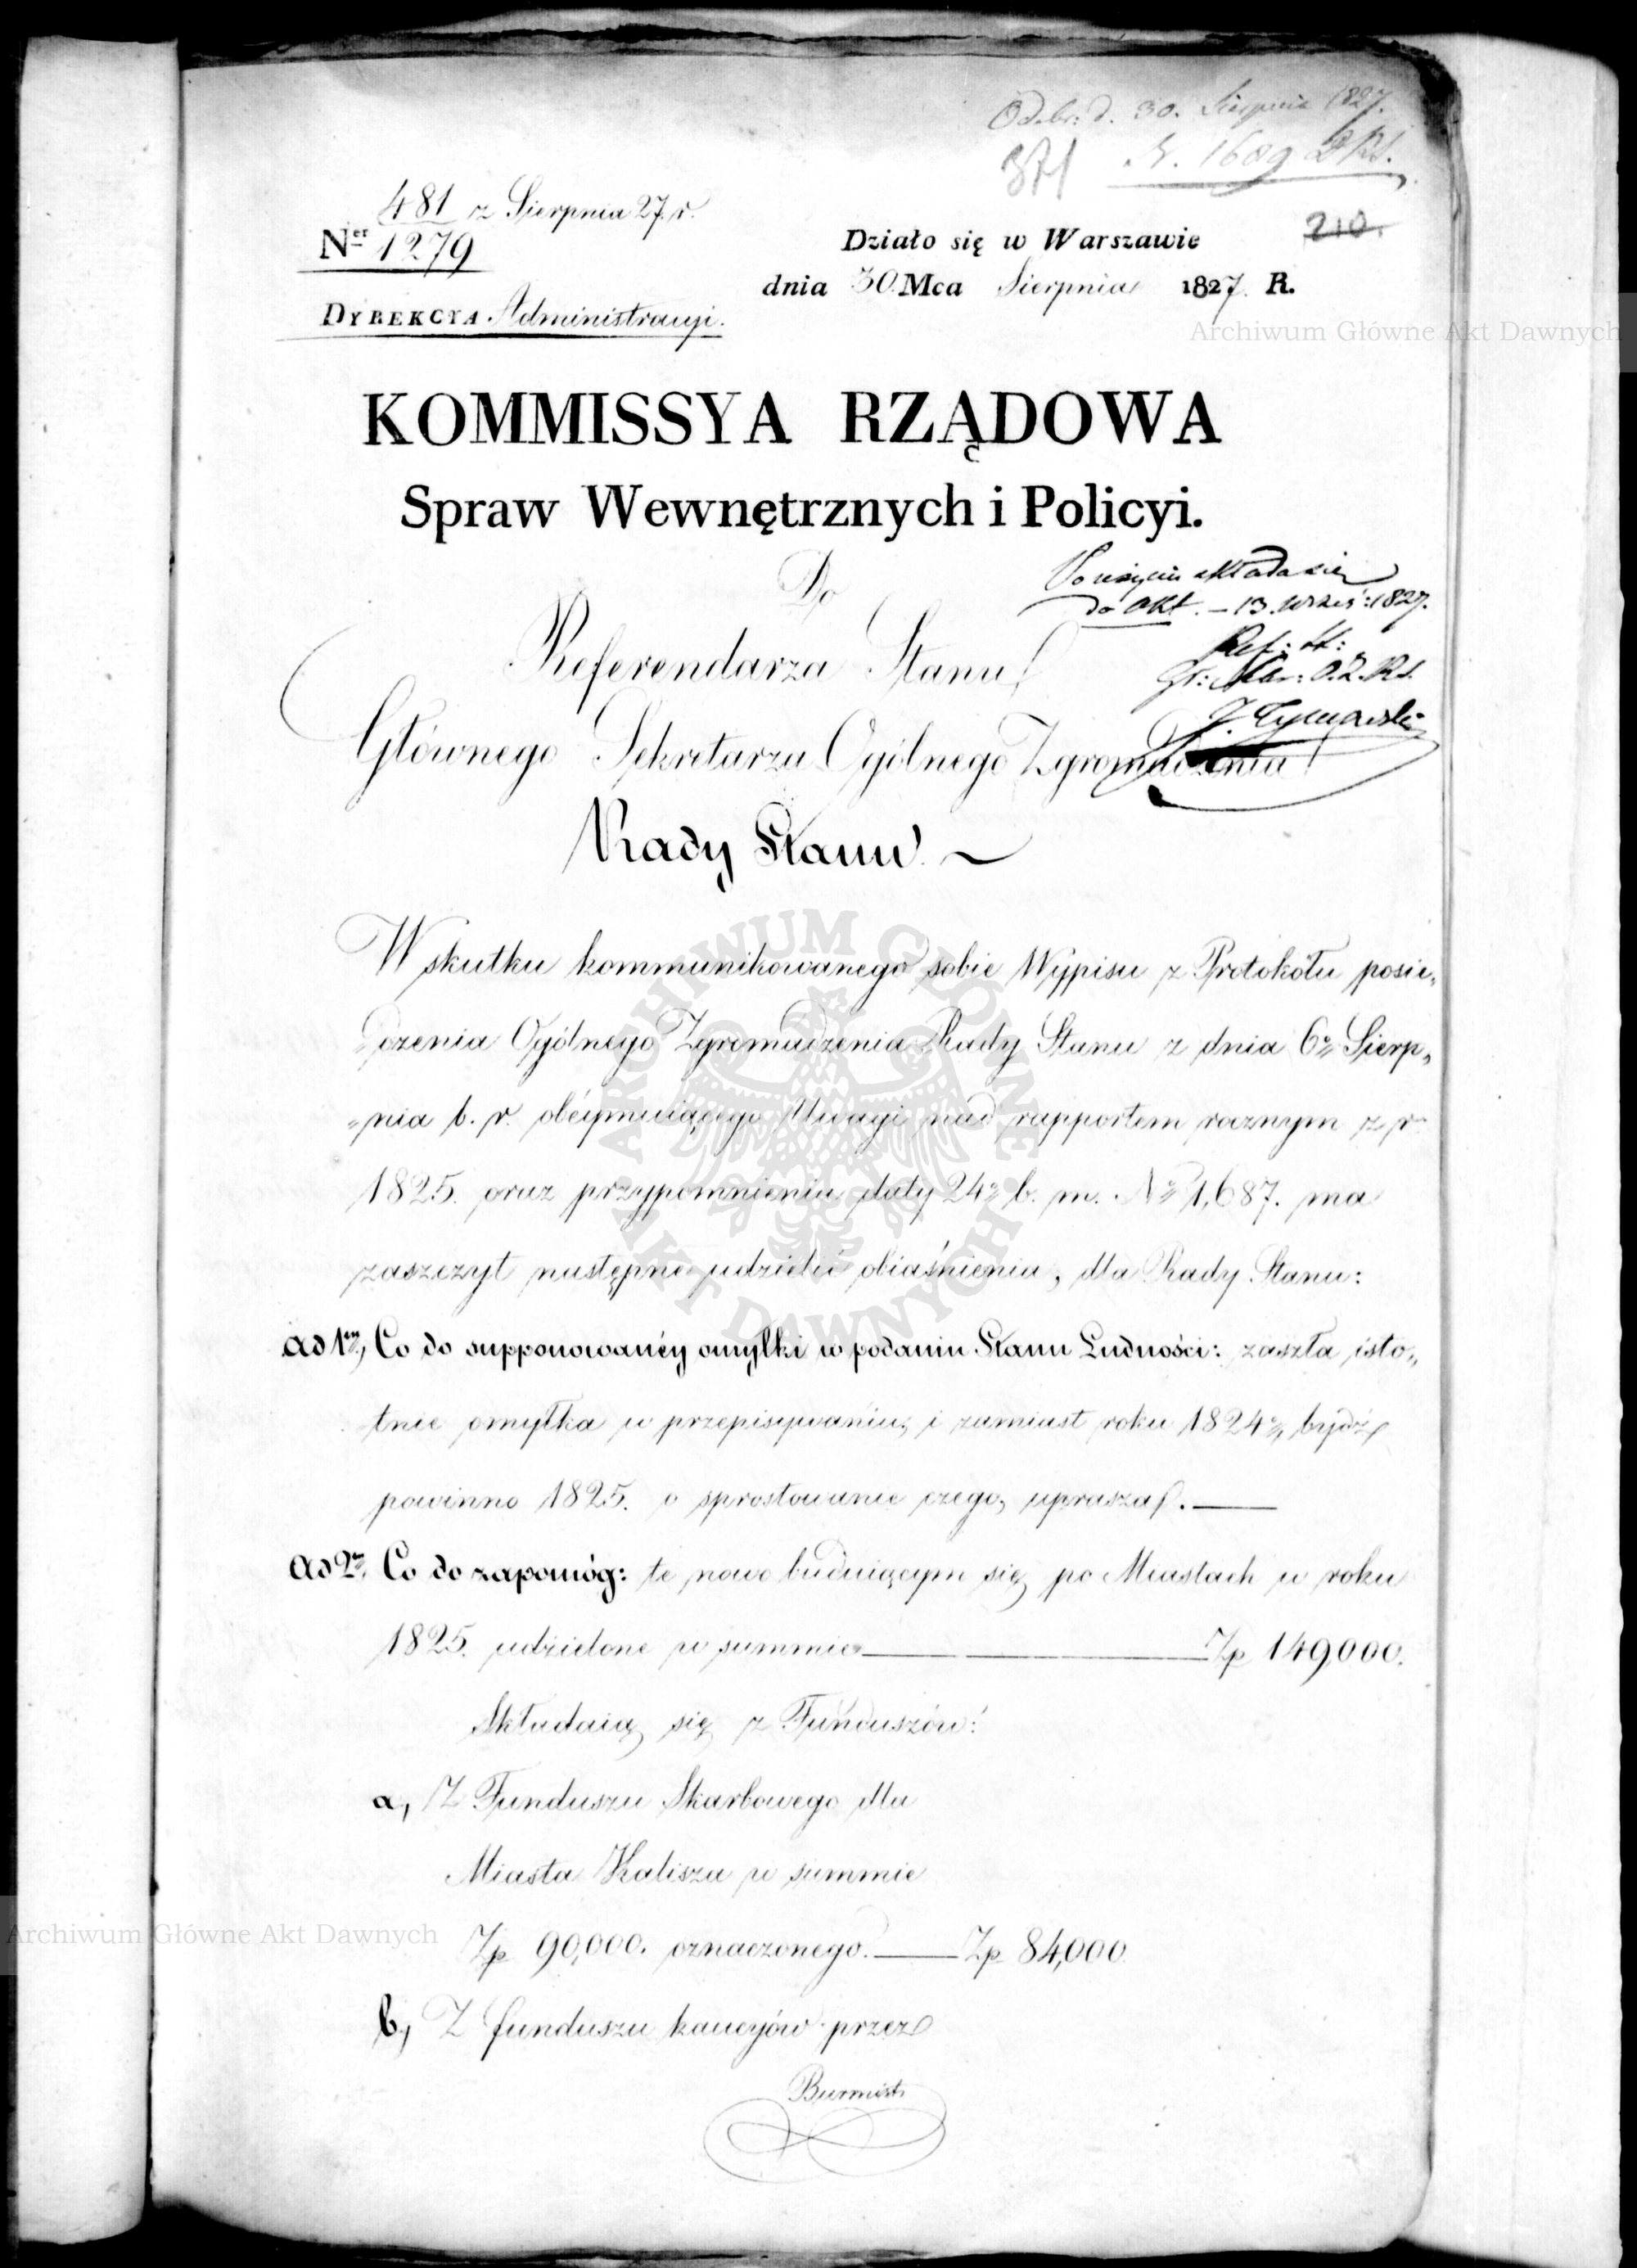 Odebr: d. 30. Sierpnia 1827.
371 N. 1689 RS.
481 z Sierpnia 27. r.
Ner 1279
210.
Działo się w Warszawie
dnia 30 Mca Sierpnia 1827. R.
DYREKCYA Administracyi.
KOMMISSYA RZĄDOWA
Spraw Wewnętrznych i Policyi.
Do
Po użyciu składa się
do Akt. – 13. Wrześ: 1827.
Referendarza Stanu
Ref: St:
Głównego Sekretarza Ogólnego Zgromadzenia
Rady Stanu.
W skutku kommunikowanego sobie Wypisu z Protokółu posie„
dzenia Ogólnego Zgromadzenia Rady Stanu z dnia 6o Sierp„
„nia b. r. obéymuiącego Uwagi nad rapportem rocznym z r
1825. oraz przypomnienia daty 24o b. m. No 1,687. ma
zaszczyt następne udzielić obiaśnienia, dla Rady Stanu:
ad 1m, Co do supponowanéy omyłki w podaniu Stanu Ludności: zaszła isto„
tnie omyłka w przepisywaniu, i zamiast roku 1824o, bydź
powinno 1825. o sprostowanie czego, uprasza. —
Ad 2m, Co do zapomóg: te nowo buduiącym się po Miastach w roku
1825. udzielone w summie — Zp 149,000.
Składaią się z Funduszów:
a, Z Funduszu Skarbowego dla
Miasta Kalisza w summie
Zp 90,000. oznaczonego. — Zp 84,000
b, Z funduszu kaucyów przez
Burmist
Archiwum Główne Akt Dawnych
ARCHIWUM GŁÓWNE AKT DAWNYCH
Archiwum Główne Akt Dawnych